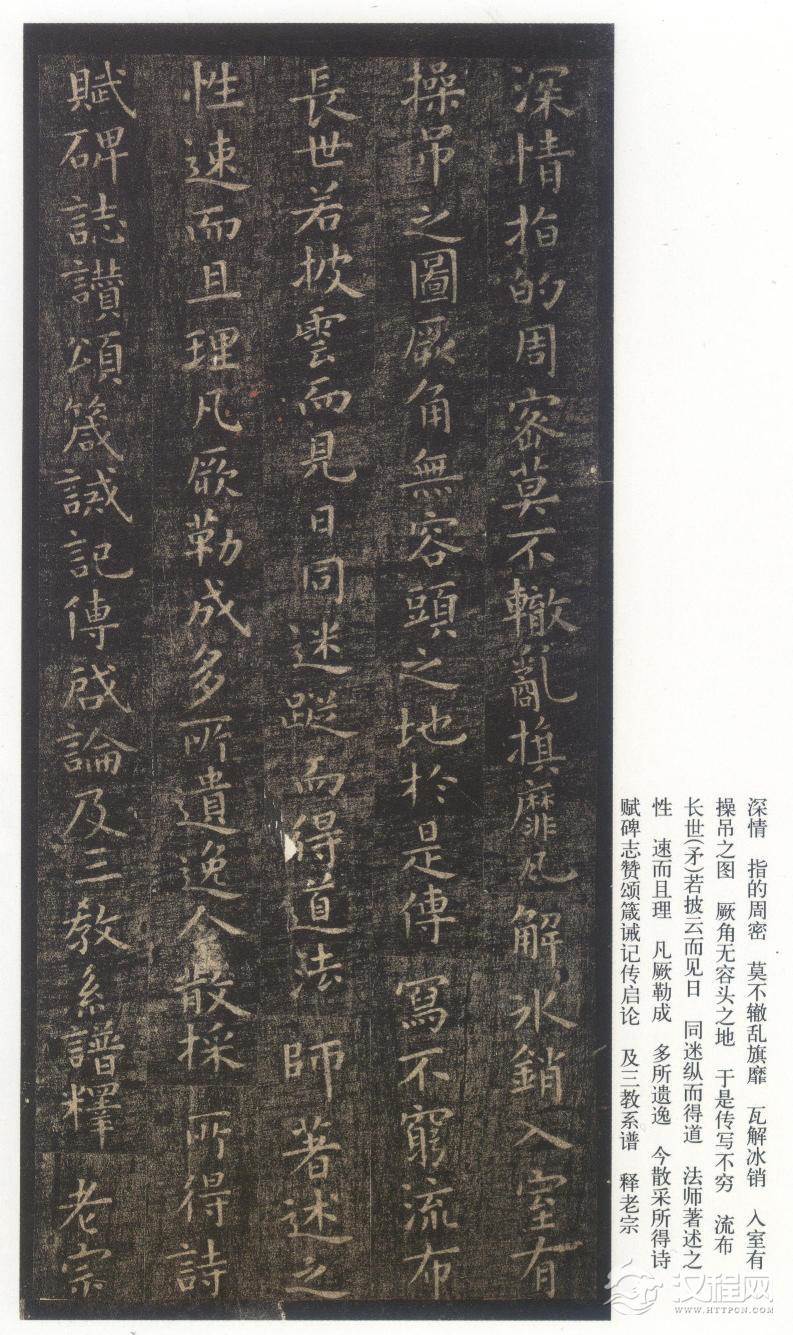 深情指的周密莫不轍亂旗靡瓦解冰銷入室有
操吊之圖厥角無容頭之地於是傳寫不窮流布
長世若披雲而見日同迷蹤而得道法師著述之
性速而且理凡厥勒成多所遺逸今散採所得詩
賦碑誌讚頌箴誡記傳啟論及三教系譜釋老宗
深情 指的周密 莫不辙乱旗靡 瓦解冰销 入室有
操吊之图 厥角无容头之地 于是传写不穷 流布
长世(矛)若披云而见日 同迷纵而得道 法师著述之
性 速而且理 凡厥勒成 多所遗逸 今散采所得诗
赋碑志赞颂箴诫记传启论 及三教系谱 释老宗
汉程网
WWW.HTTPCN.COM